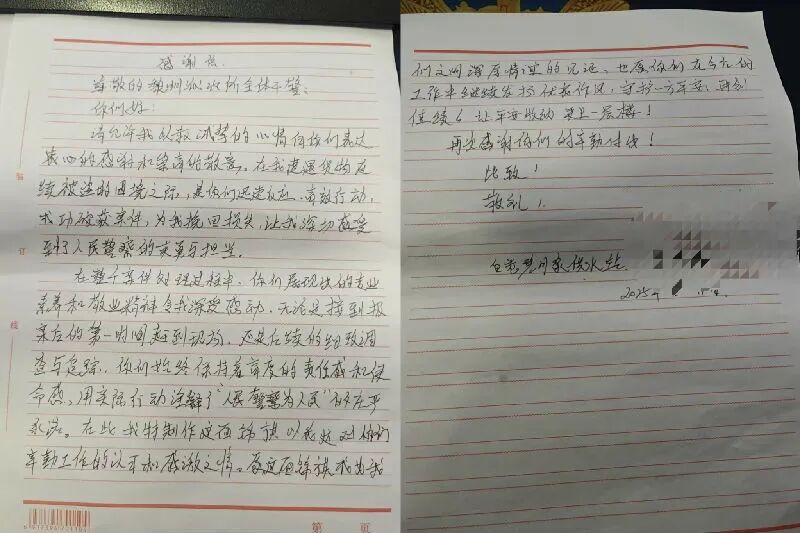 感谢信
尊敬的派出所全体干警:
你们好!
请允许我以最诚挚的心情向你们表达
衷心的感谢和崇高的敬意。在我遭遇货物连
续被盗的困境之际,是你们迅速反应、高效行动,
成功破获案件,为我挽回损失,让我深切感受
到了人民警察的英勇与担当。
在整个案件处理过程中,你们展现出的专业
素养和敬业精神令我深受感动。无论是接到报
案后的第一时间赶到现场,还是后续的细致调
查与追踪,你们始终保持着高度的责任感和使
命感,用实际行动诠释了“人民警察为人民”的庄严
承诺。在此我特制作锦旗以表达对你们
辛勤工作的认可和感激之情。愿这面锦旗成为我
装
订
线
第 页
们文明深厚情谊的见证,也愿你们在今后的
工作中继续发扬优良作风,守护一方平安,再创
佳绩,让平安
再次感谢你们的辛勤付出!
此致!
敬礼!
供水站
2025年